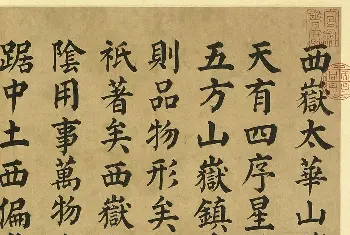 西嶽太華山
天有四序星
五方山嶽鎮
則品物形矣
祇著矣西嶽
陰用事萬物
踞中土西偏